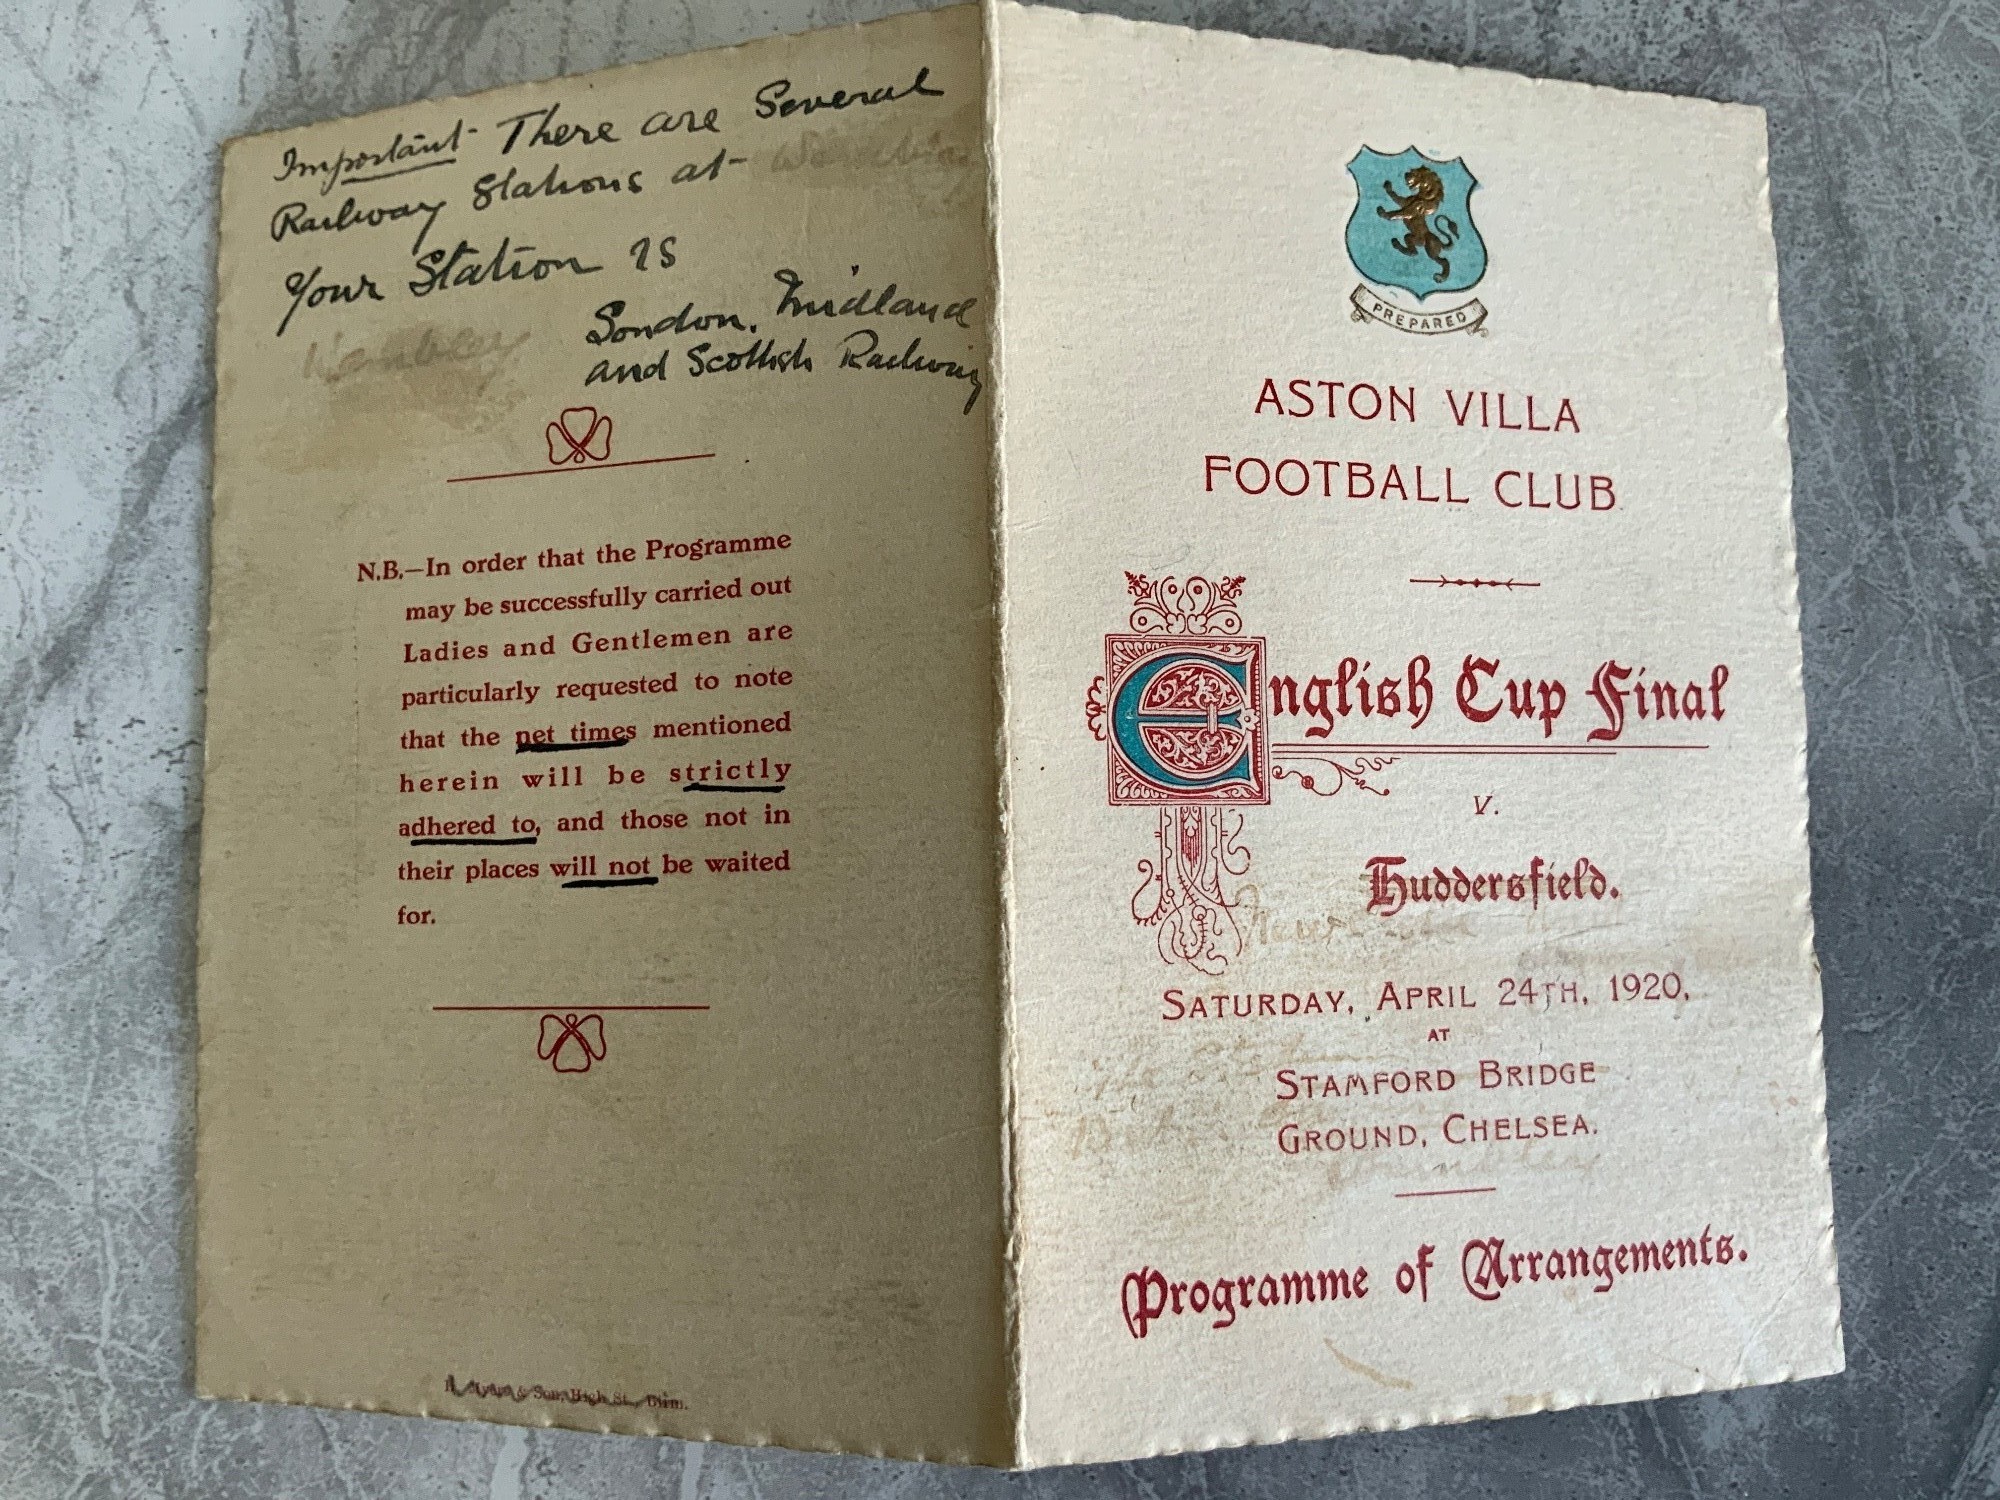 Important There are Several
Railway Stations at
Your Station is
Wembley
London, Midland
and Scottish Railway
N.B.—In order that the Programme
may be successfully carried out
Ladies and Gentlemen are
particularly requested to note
that the net times mentioned
herein will be strictly
adhered to, and those not in
their places will not be waited
for.
& Son, High St., B'ham.
PREPARED
ASTON VILLA
FOOTBALL CLUB
English Cup Final
V.
Huddersfield.
SATURDAY, APRIL 24TH, 1920,
AT
STAMFORD BRIDGE
GROUND, CHELSEA.
Programme of Arrangements.